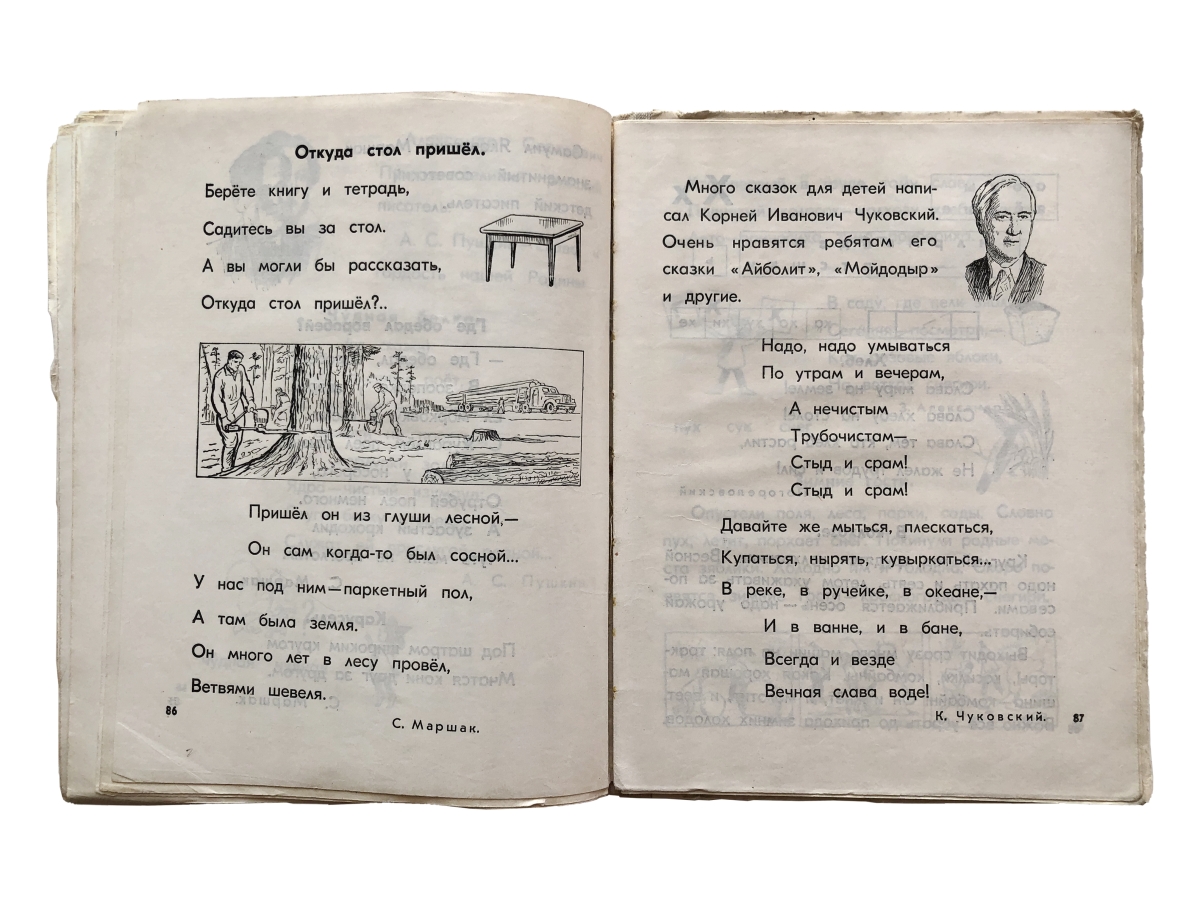 Откуда стол пришёл.
Берёте книгу и тетрадь,
Садитесь вы за стол.
А вы могли бы рассказать,
Откуда стол пришёл?..
Пришёл он из глуши лесной,—
Он сам когда-то был сосной...
У нас под ним—паркетный пол,
А там была земля.
Он много лет в лесу провёл,
Ветвями шевеля.
86
С. Маршак.
Много сказок для детей напи-
сал Корней Иванович Чуковский.
Очень нравятся ребятам его
сказки «Айболит», «Мойдодыр»
и другие.
Надо, надо умываться
По утрам и вечерам,
А нечистым
Трубочистам—
Стыд и срам!
Стыд и срам!
Давайте же мыться, плескаться,
Купаться, нырять, кувыркаться...
В реке, в ручейке, в океане,—
И в ванне, и в бане,
Всегда и везде
Вечная слава воде!
К. Чуковский.
87